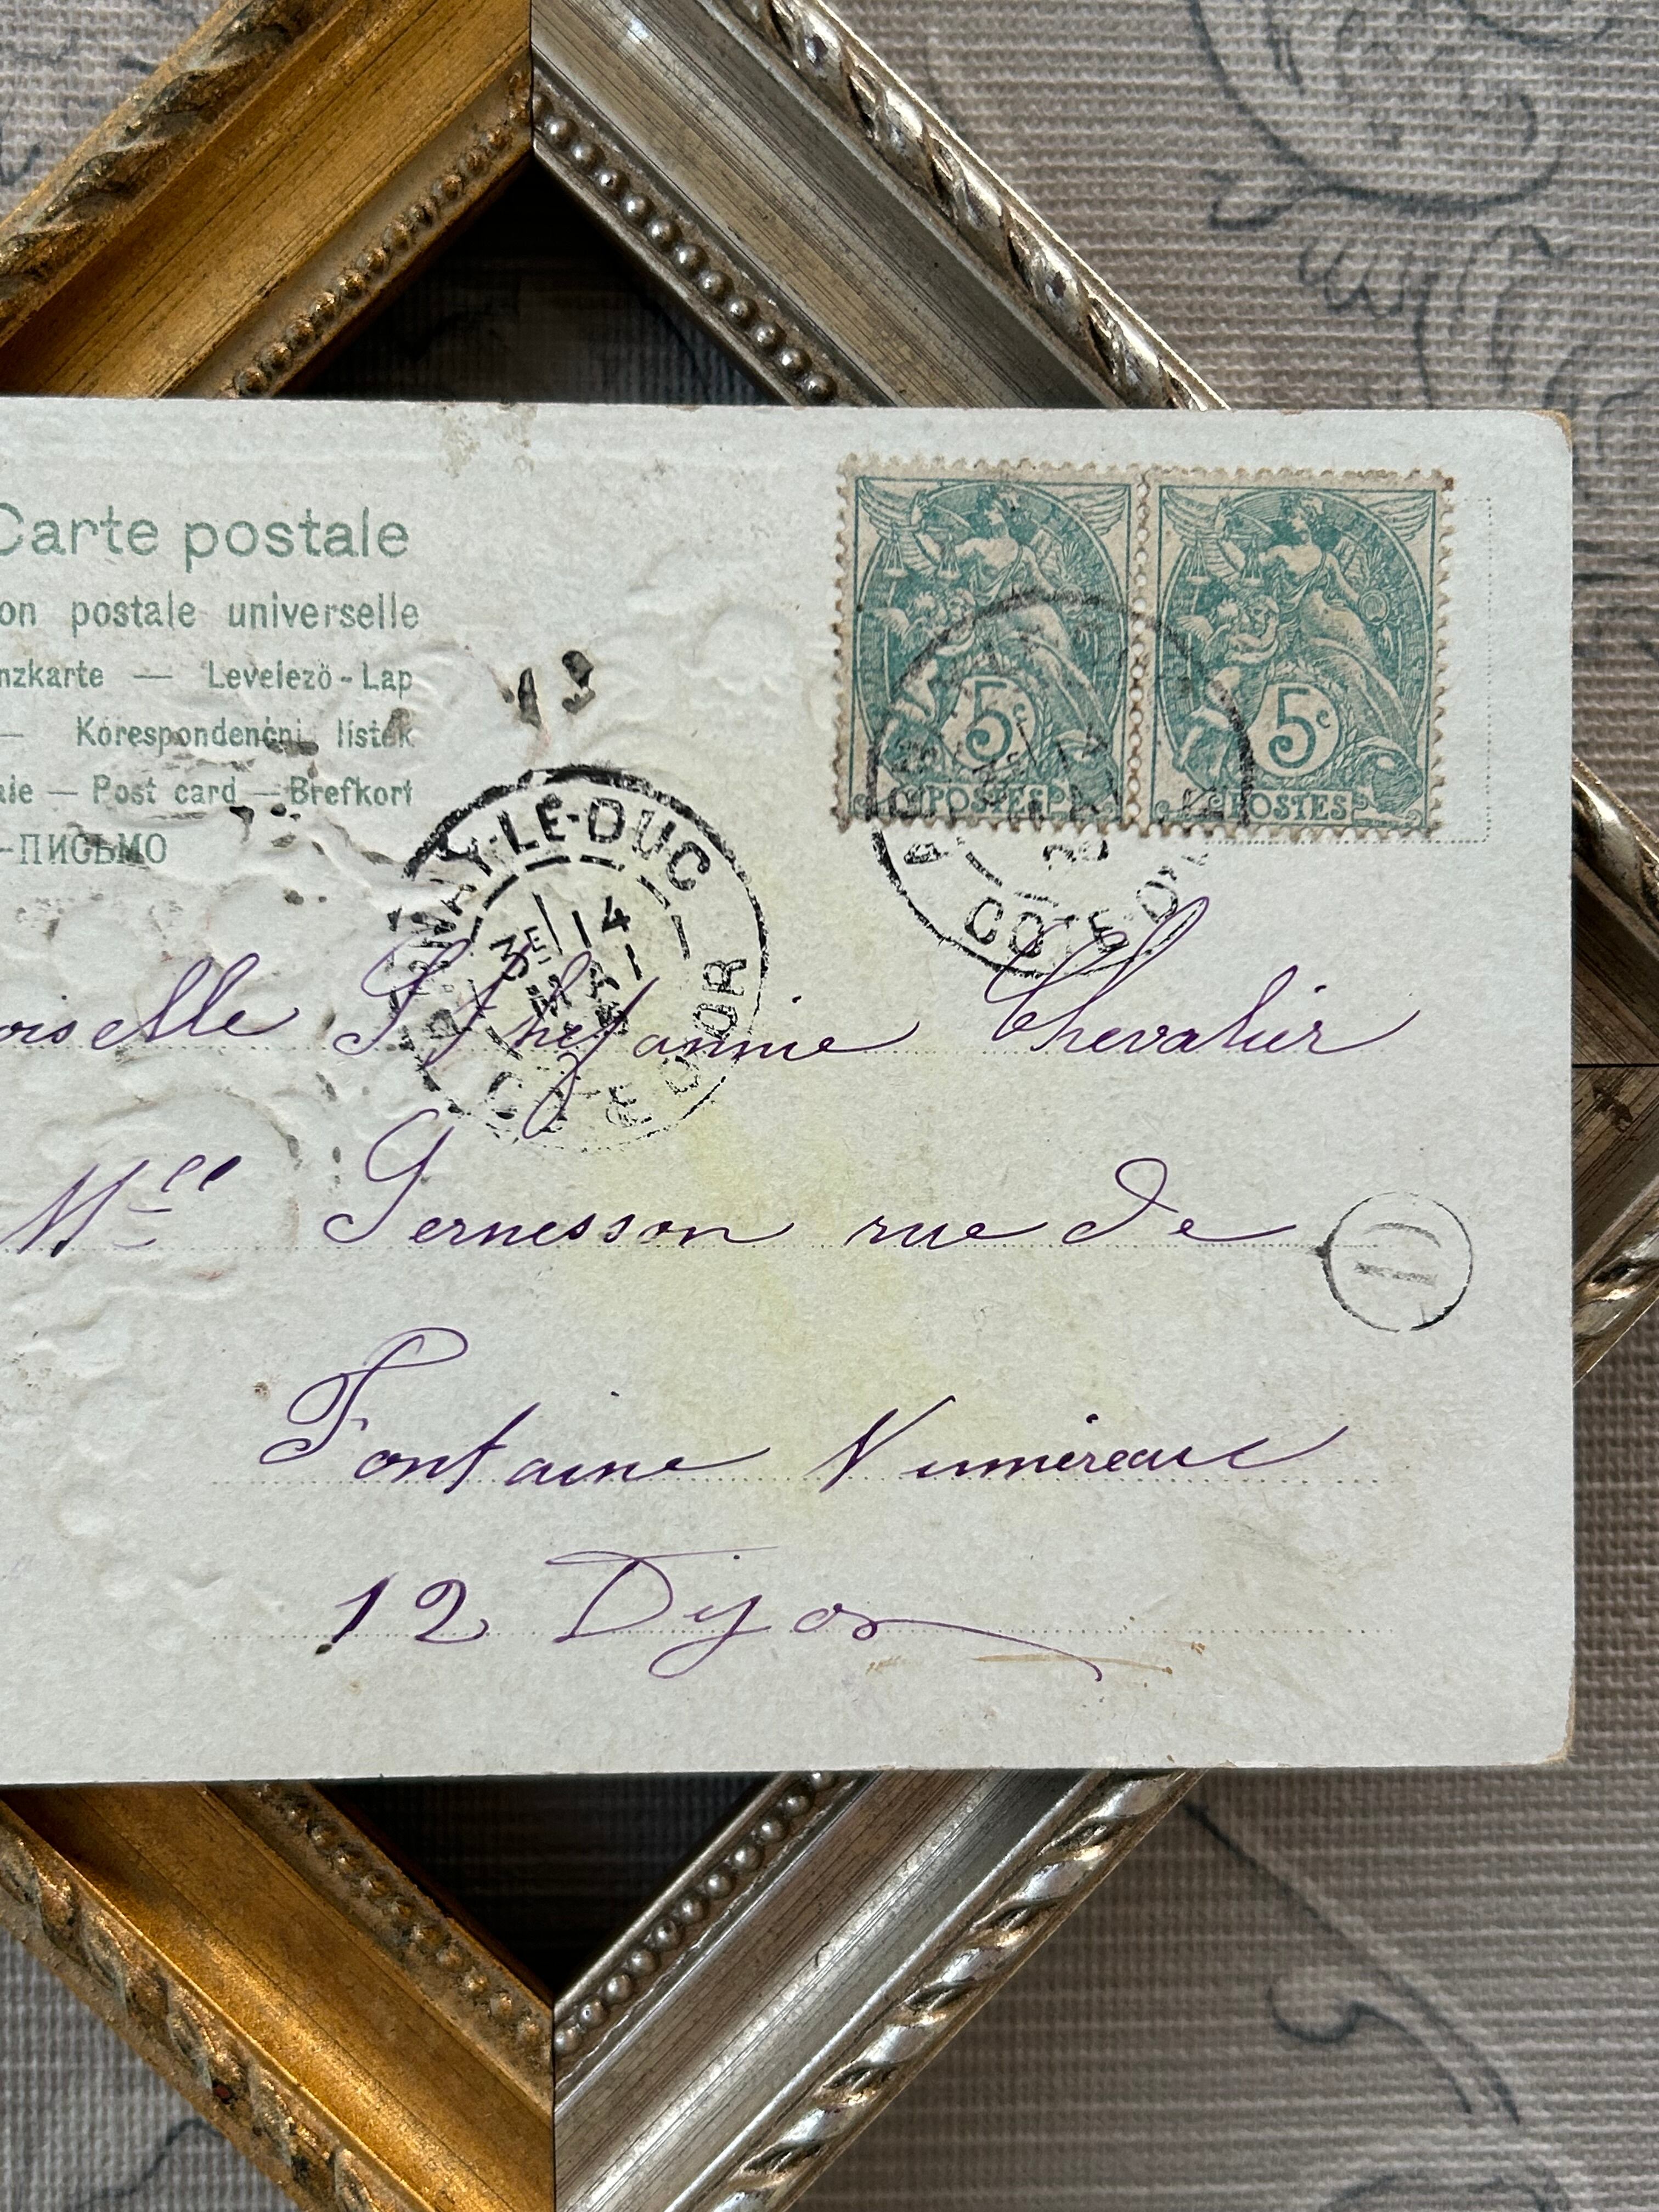 Carte postale
on postale universelle
nzkarte — Levelezö-Lap
— Korespondenčni listek
ale — Post card — Brefkort
-ПИСЬМО
5c
POSTES
5c
POSTES
12
NAY-LE-DUC
3E 14
MAI
COTE D'OR
COTE-D'OR
oiselle Sthéfannie Chevalier
Mce Gernesson rue de
Fontaine Numéreau
12 Dijon